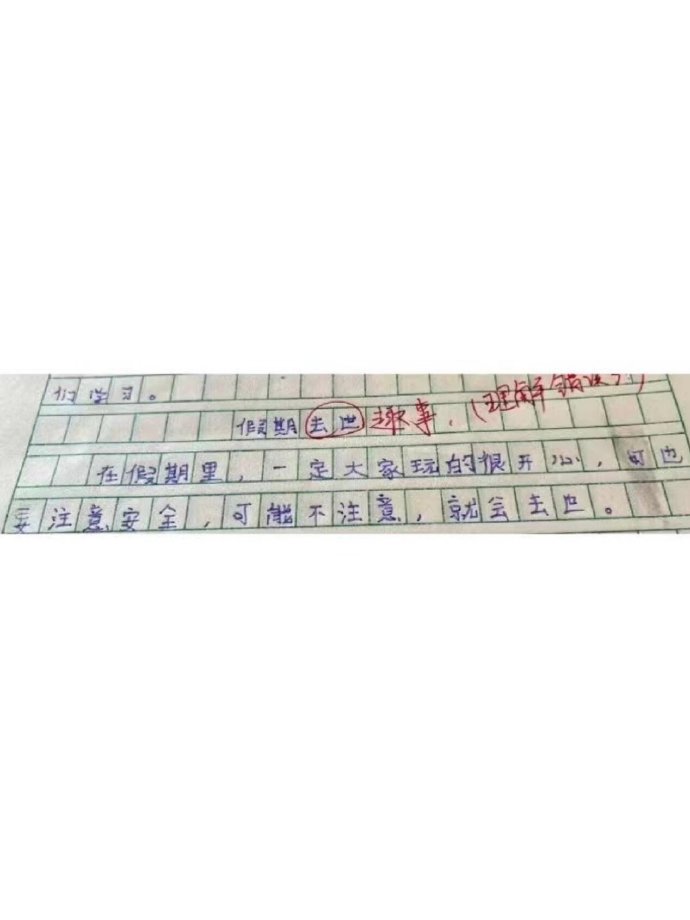 们学习。
假期去世趣事.(理解错误!)
在假期里,一定大家玩的很开心,可也
要注意安全,可能不注意,就会去世。